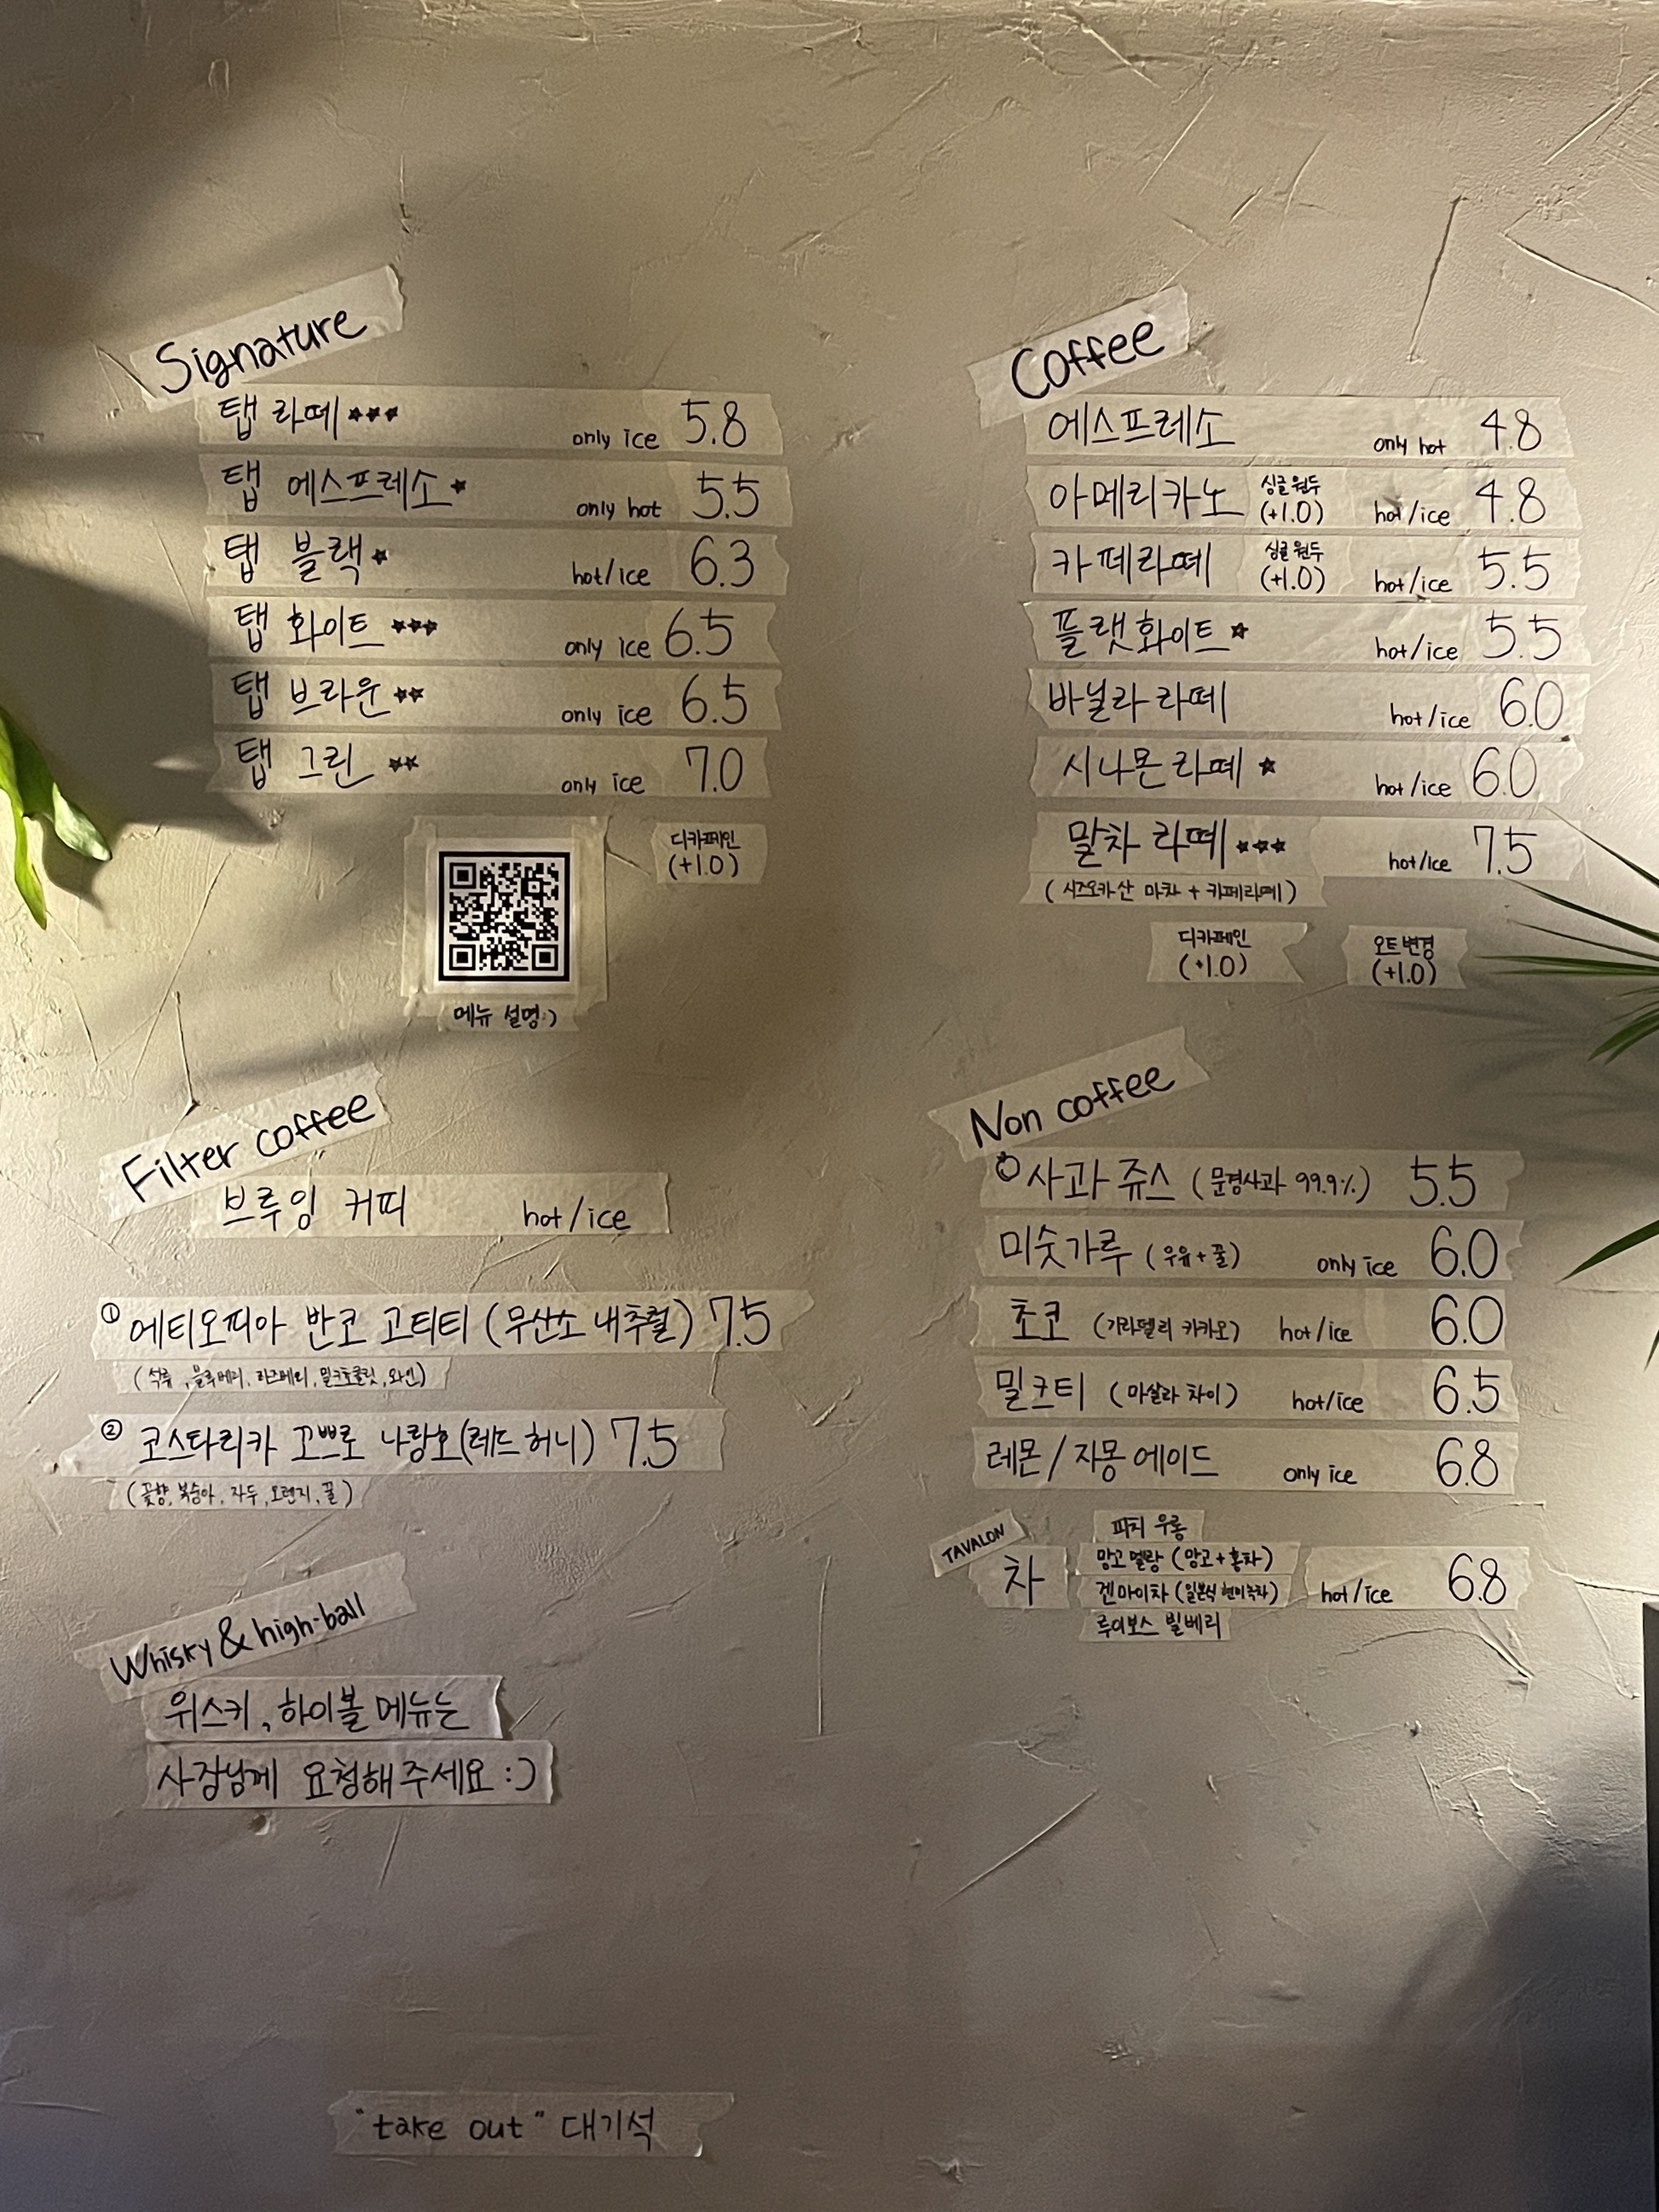 Signature
탭 라떼 ★★★ only ice 5.8
탭 에스프레소 ★ only hot 5.5
탭 블랙 ★ hot/ice 6.3
탭 화이트 ★★★ only ice 6.5
탭 브라운 ★★ only ice 6.5
탭 그린 ★★ only ice 7.0
디카페인
(+1.0)
메뉴 설명:)
Coffee
에스프레소 only hot 4.8
아메리카노 싱글 원두 (+1.0) hot/ice 4.8
카페라떼 싱글 원두 (+1.0) hot/ice 5.5
플랫화이트 ★ hot/ice 5.5
바닐라 라떼 hot/ice 6.0
시나몬 라떼 ★ hot/ice 6.0
말차 라떼 ★★★ hot/ice 7.5
(시즈오카산 마차 + 카페라떼)
디카페인
(+1.0)
오트 변경
(+1.0)
Filter coffee
브루잉 커피 hot/ice
① 에티오피아 반코 고티티 (무산소 내추럴) 7.5
(석류, 블루베리, 라즈베리, 밀크초콜릿, 와인)
② 코스타리카 꼬쁘로 나랑호(레드 허니) 7.5
(꽃향, 복숭아, 자두, 오렌지, 꿀)
Non coffee
사과 쥬스 (문경사과 99.9%) 5.5
미숫가루 (우유+꿀) only ice 6.0
초코 (기라델리 카카오) hot/ice 6.0
밀크티 (마살라 차이) hot/ice 6.5
레몬/자몽 에이드 only ice 6.8
TAVALON
차 hot/ice 6.8
피치 우롱
망고 멜랑 (망고+홍차)
겐마이차 (일본식 현미녹차)
루이보스 빌베리
Whisky & high-ball
위스키, 하이볼 메뉴는
사장님께 요청해주세요 :)
"take out" 대기석